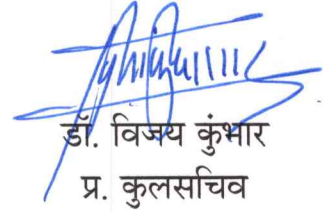 डॉ. विजय कुंभार
प्र. कुलसचिव